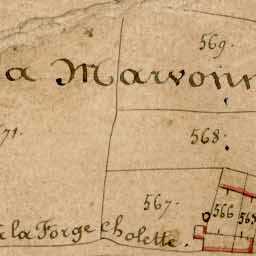 569.
a Marvonn
571.
568.
567.
566
565
à la Forge Cholette.